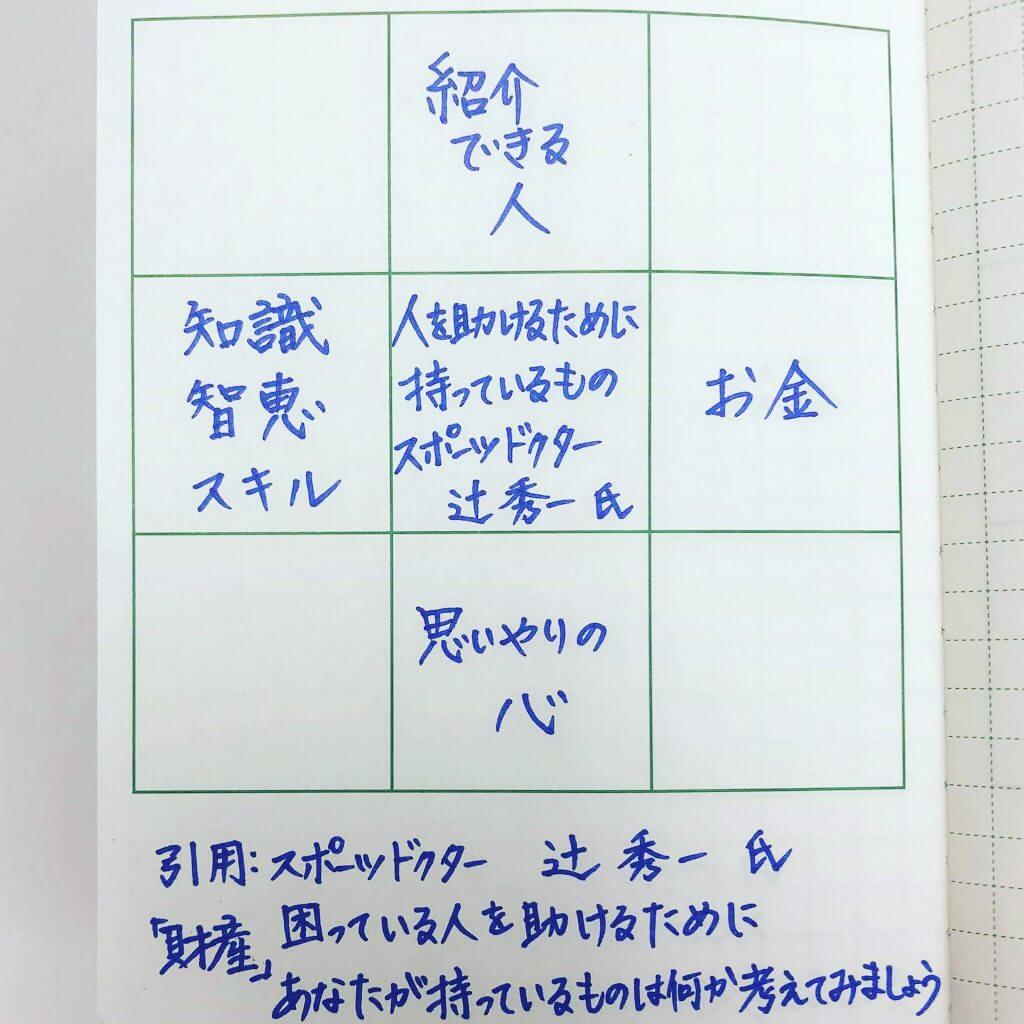 紹介
できる
人
知識
智恵
スキル
人を助けるために
持っているもの
スポーツドクター
辻 秀一 氏
お金
思いやりの
心
引用:スポーツドクター 辻 秀一 氏
「財産」困っている人を助けるために
あなたが持っているものは何か考えてみましょう